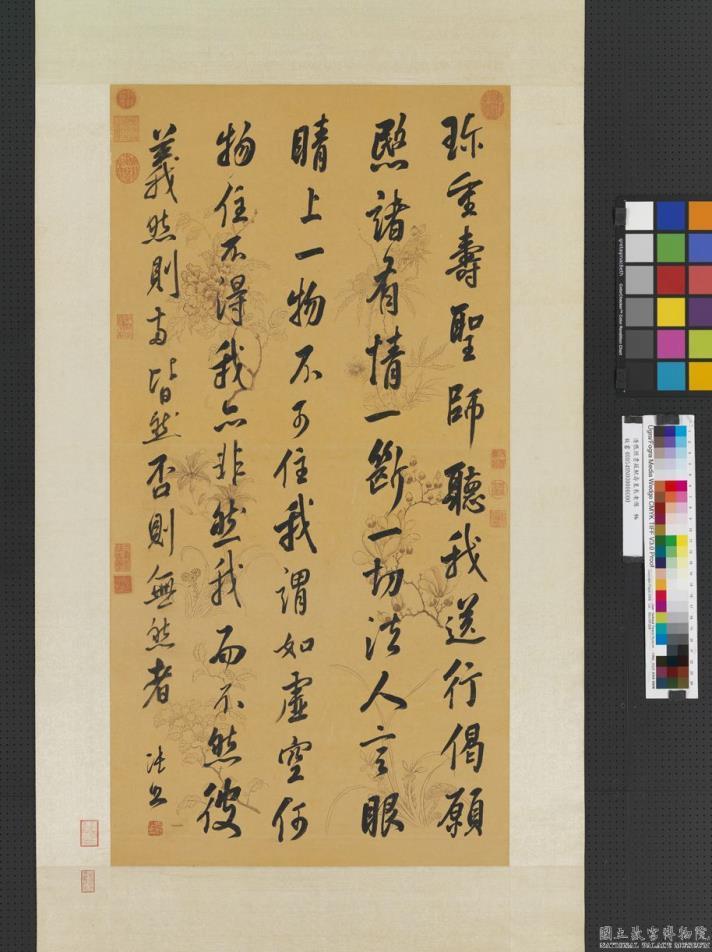 珎重壽聖師聽我送行偈願
愍諸有情一斷一切法人言眼
睛上一物不可住我謂如虛空何
物住不得我亦非然我而不然彼
義然則兩皆然否則無然者
Ugra/Fogra Media Wedge CMYK TIFF V3.0 Proof
國立故宮博物院
NATIONAL PALACE MUSEUM